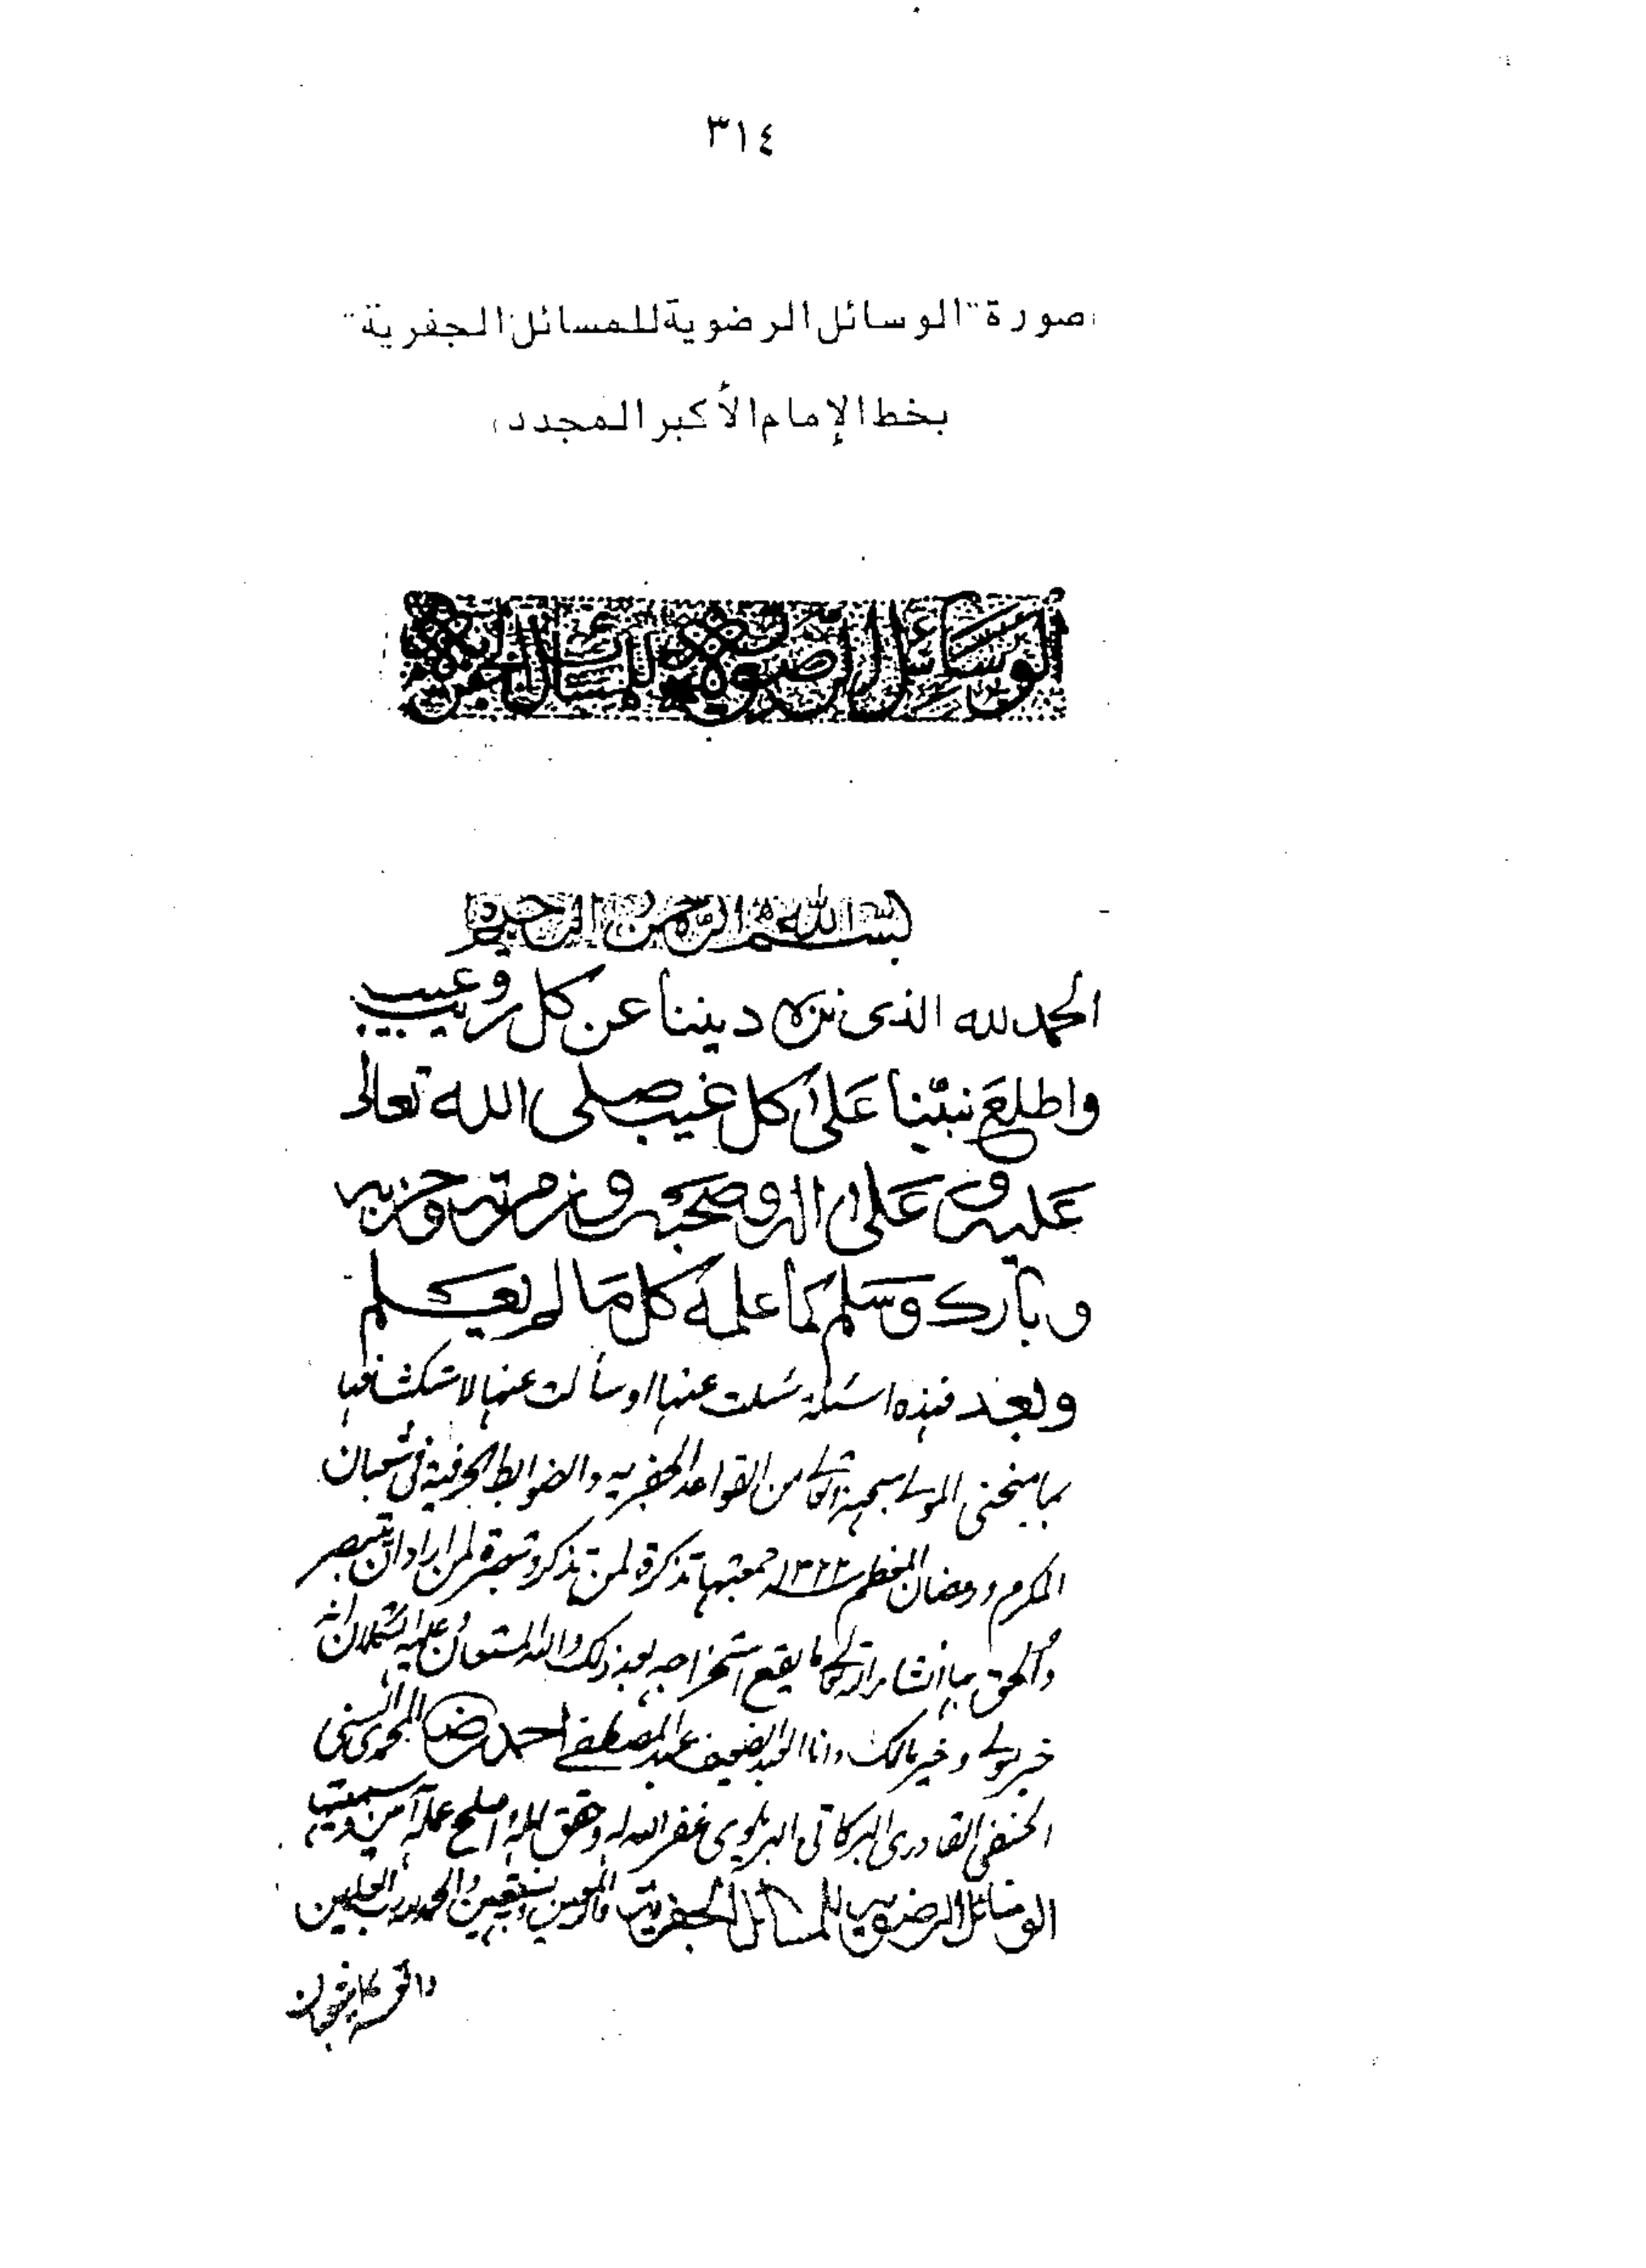 ٣١٤
صورة "الوسائل الرضوية للمسائل الجفرية"
بخط الإمام الأكبر المجدد
الوسائل الرضوية للمسائل الجفرية
بسم الله الرحمن الرحيم
الحمد لله الذى نزه ديننا عن كل ريب وعيب
واطلع نبيّنا على كل غيب صلى الله تعالى
عليه وعلى اله وصحبه وزمرته وحزبه
وبارك وسلم كما علمه كل ما لم يعلم
وبعد فهذه اسئلة سئلت عنها او سألت عنها لاستكشافها
بما منحنى المولى سبحنه وتعالى من القواعد الجفريه والضوابط الحرفية فى شعبان
المكرم ورمضان المعظم ١٣٢٢ جمعتها تذكرة لمن تذكر وتبصرة لمن اراد ان يتبصر
والحق بها ان شاء الله تعالى ما يقع استخراجه بعد ذلك والله المستعان وعليه التكلان انه
خير مولى وخير مالك وانا العبد الضعيف عبد المصطفى احمد رضا المحمدى السنى
الحنفى القادرى البركاتى البريلوى غفر الله له وحقق امله واصلح عمله آمين وسميتها
الوسائل الرضويه للمسائل الجفريه والحمد لله رب العلمين